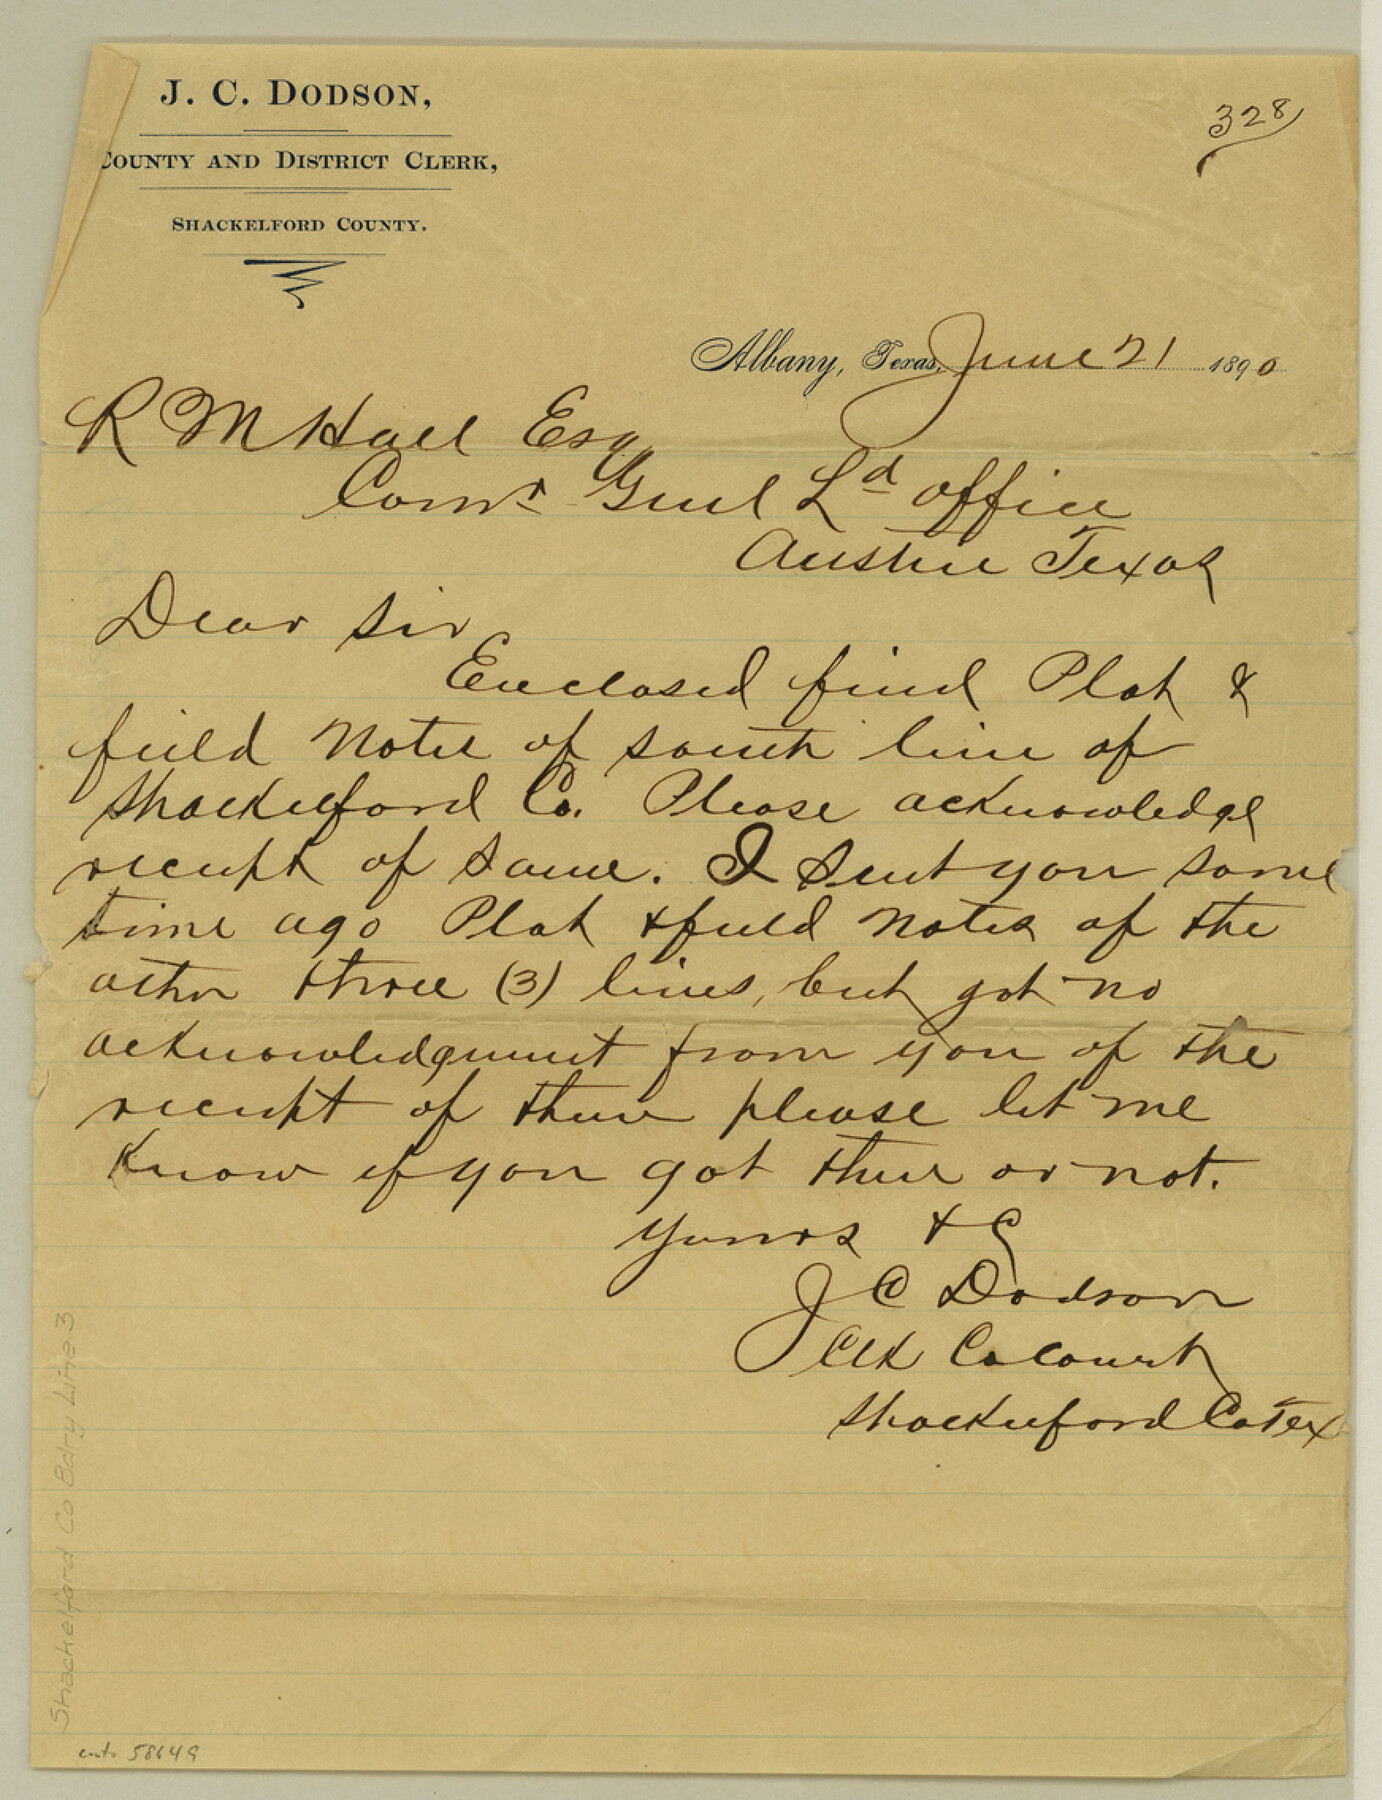 J. C. DODSON,
COUNTY AND DISTRICT CLERK,
SHACKELFORD COUNTY.
328
Albany, Texas, June 21 1890
R M Hall Esq
Comr Genl Ld office
Austin Texas
Dear Sir
Enclosed find Plat &
field Notes of south line of
Shackelford Co. Please acknowledge
receipt of same. I sent you some
time ago Plat & field notes of the
other three (3) lines, but got no
acknowledgment from you of the
receipt of them please let me
know if you got them or not.
Yours &C
J C Dodson
Clk Co Court
Shackelford Co Tex
Shackelford Co Bdry Line 3
58649